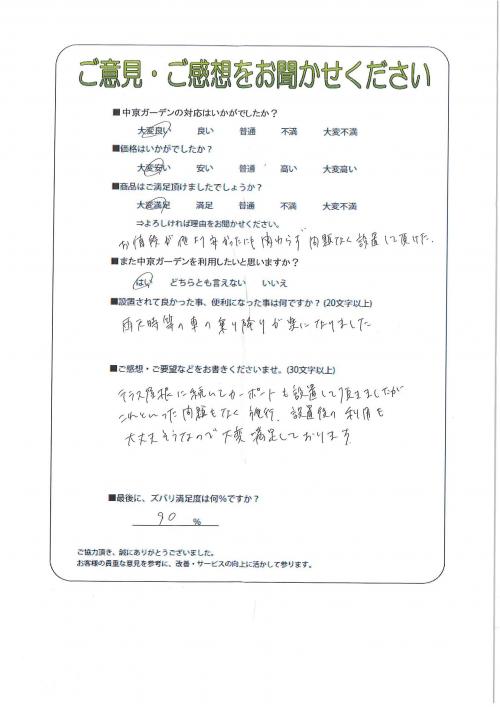 ご意見・ご感想をお聞かせください
■中京ガーデンの対応はいかがでしたか？
大変良い 良い 普通 不満 大変不満
■価格はいかがでしたか？
大変安い 安い 普通 高い 大変高い
■商品はご満足頂けましたでしょうか？
大変満足 満足 普通 不満 大変不満
⇒よろしければ理由をお聞かせください。
お値段が他より安かったにも関わらず問題なく設置して頂けた.
■また中京ガーデンを利用したいと思いますか？
はい どちらとも言えない いいえ
■設置されて良かった事、便利になった事は何ですか？(20文字以上)
雨天時等の車の乗り降りが楽になりました
■ご感想・ご要望などをお書きくださいませ。(30文字以上)
テラス屋根に続いてカーポートも設置して頂きましたが
これといった問題もなく施行、設置後の利用も
大丈夫そうなので大変満足しております
■最後に、ズバリ満足度は何％ですか？
90 ％
ご協力頂き、誠にありがとうございました。
お客様の貴重な意見を参考に、改善・サービスの向上に活かして参ります。